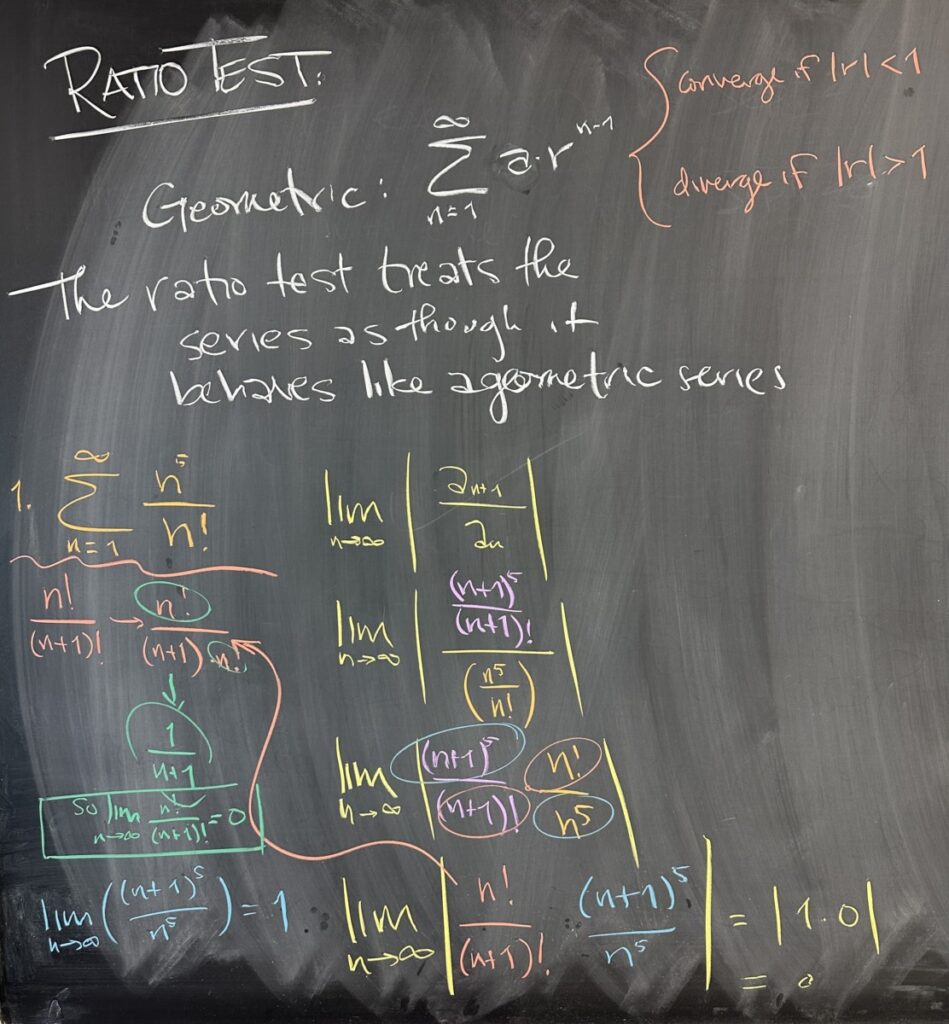 RATIO TEST:
Geometric: ∑_{n=1}^{∞} a·r^{n-1} { converge if |r| < 1
diverge if |r| > 1
The ratio test treats the
series as though it
behaves like a geometric series
1. ∑_{n=1}^{∞} n^5/n!
n!/(n+1)! → n!/((n+1) n!)
↓
1/(n+1)
So lim_{n→∞} n!/(n+1)! = 0
lim_{n→∞} ((n+1)^5/n^5) = 1
lim_{n→∞} | a_{n+1}/a_n |
lim_{n→∞} | ((n+1)^5/(n+1)!)/(n^5/n!) |
lim_{n→∞} | (n+1)^5/(n+1)! n!/n^5 |
lim_{n→∞} | n!/(n+1)! (n+1)^5/n^5 | = |1·0|
= 0